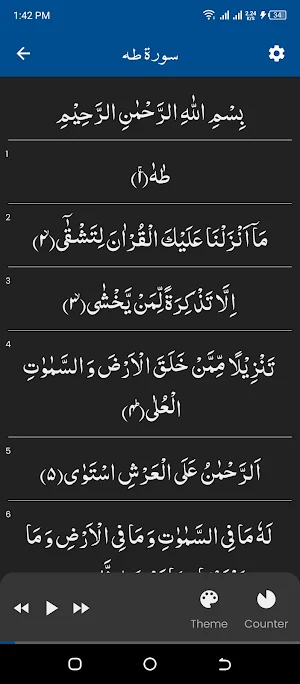 1:42 PM 2.24 KB/s 34
سورة طه
بِسْمِ اللّٰهِ الرَّحْمٰنِ الرَّحِيْمِ
1
طٰهٰ﴿۱﴾
2
مَاۤ اَنْزَلْنَا عَلَيْكَ الْقُرْاٰنَ لِتَشْقٰۤى﴿۲﴾
3
اِلَّا تَذْكِرَةً لِّمَنْ يَّخْشٰى﴿۳﴾
4
تَنْزِيْلًا مِّمَّنْ خَلَقَ الْاَرْضَ وَ السَّمٰوٰتِ
الْعُلٰى﴿۴﴾
5
اَلرَّحْمٰنُ عَلَى الْعَرْشِ اسْتَوٰى﴿۵﴾
6
لَهٗ مَا فِى السَّمٰوٰتِ وَ مَا فِى الْاَرْضِ وَ مَا
Theme Counter